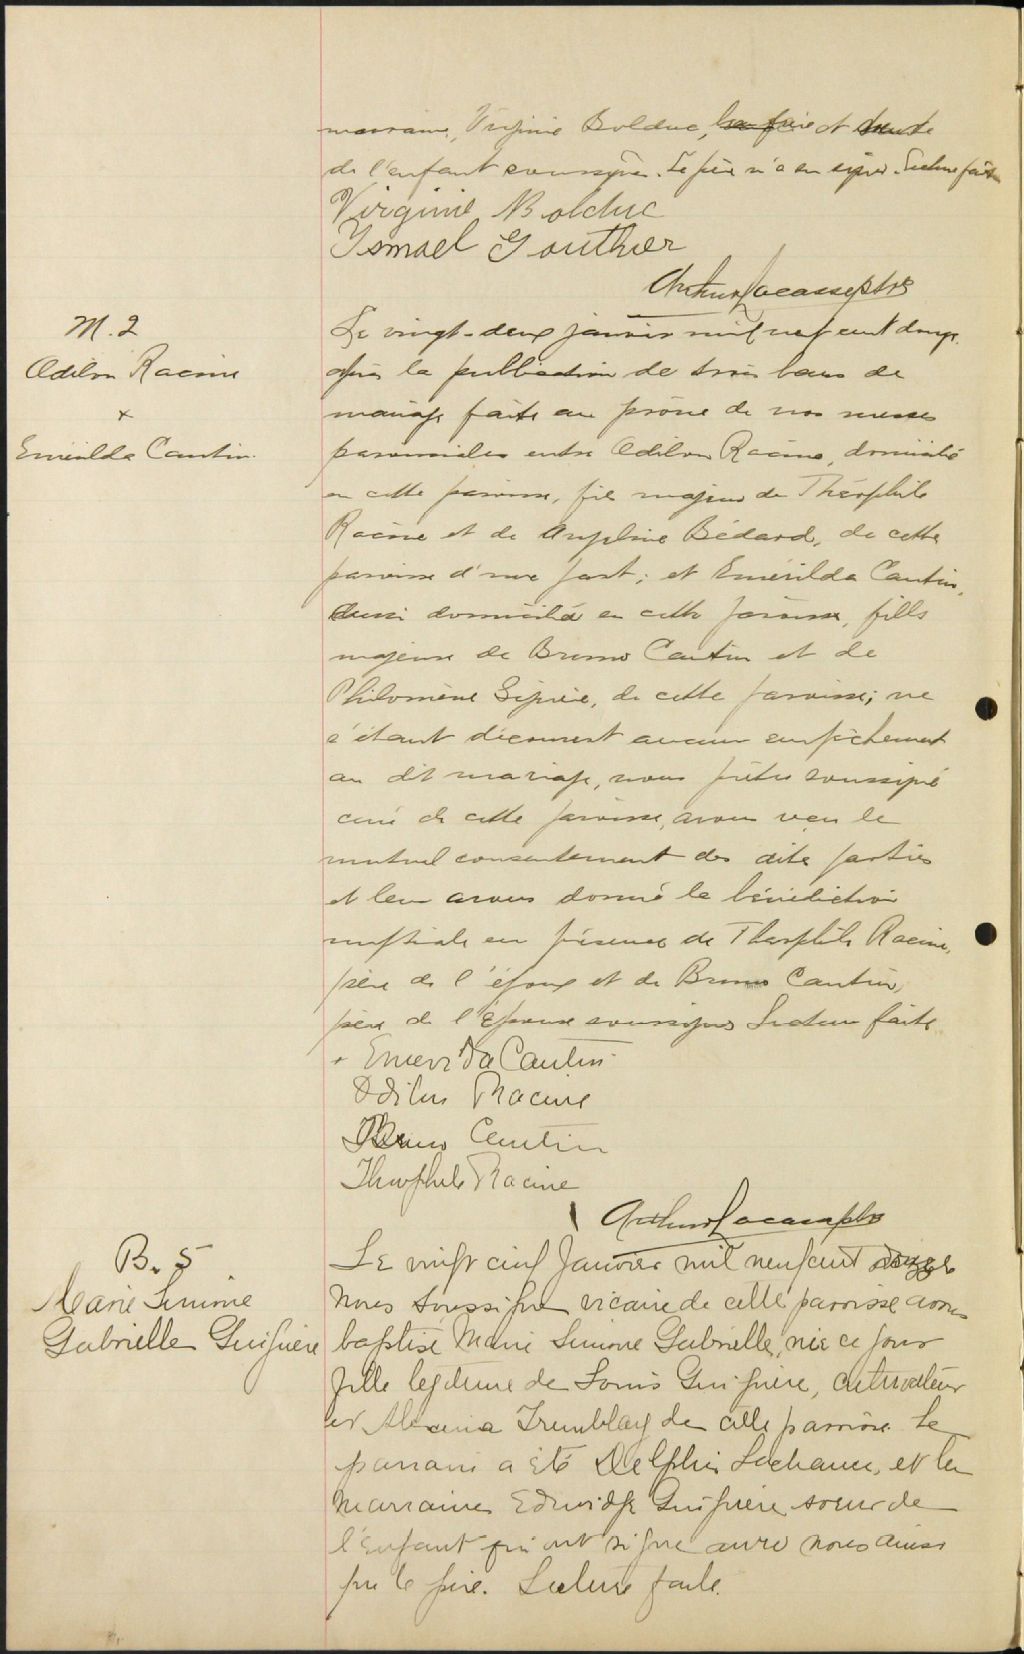 marraine, Virginie Bolduc, et tante
de l'enfant soussignée. Le père n'a su signer. Lecture faite
Virginie Bolduc
Ismael Gouthier
Arthur Lacasse ptre
M. 2
Odilon Racine
x
Emérilda Cantin.
Le vingt-deux janvier mil neuf cent douze
après la publication de trois bans de
mariage faite au prône de nos messes
paroissiales entre Odilon Racine, domicilié
en cette paroisse, fils majeur de Théophile
Racine et de Angeline Bédard, de cette
paroisse d'une part; et Emérilda Cantin,
aussi domiciliée en cette paroisse, fille
majeure de Bruno Cantin et de
Philomène de cette paroisse; ne
s'étant découvert aucun empêchement
au dit mariage, nous prêtre soussigné
curé de cette paroisse, avons reçu le
mutuel consentement des dites parties
et leur avons donné la bénédiction
nuptiale en présence de Théophile Racine,
père de l'époux et de Bruno Cantin,
père de l'épouse soussignés Lecture faite
+ Emerilda Cantin
Odilon Racine
Bruno Cantin
Theophile Racine
Arthur Lacasse ptre
B. 5
Marie Simone
Gabrielle Guiguère
Le vingt cinq Janvier mil neuf cent douze
Nous soussigné vicaire de cette paroisse avons
baptisé Marie Simone Gabrielle, née ce jour
fille légitime de Louis Guiguère, cultivateur
et Alexina Tremblay de cette paroisse. Le
parrain a été Delphis Lachance, et la
marraine Edwidge Guiguère soeur de
l'enfant qui ont signé avec nous ainsi
que le père. Lecture faite.